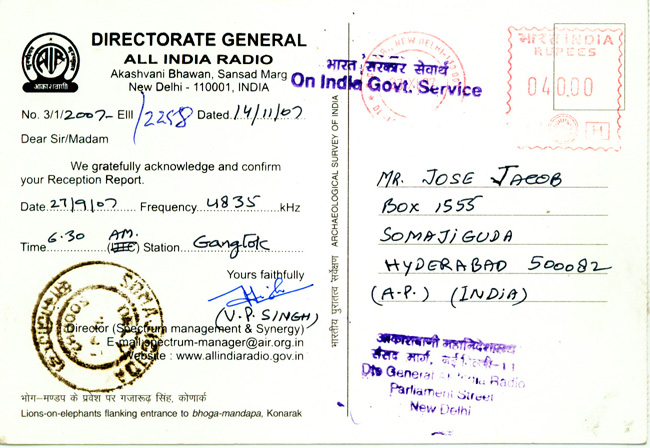 AIR
आकाशवाणी
DIRECTORATE GENERAL
ALL INDIA RADIO
Akashvani Bhawan, Sansad Marg
New Delhi - 110001, INDIA
No. 3/1/2007- EIII /2258 Dated. 14/11/07
Dear Sir/Madam
We gratefully acknowledge and confirm
your Reception Report.
Date. 27/9/07 Frequency. 4835 kHz
Time. 6.30 A.M. (UTC) Station. Gangtok
Yours faithfully
(V.P. SINGH)
Director (Spectrum management & Synergy)
E-mail spectrum-manager@air.org.in
Website : www.allindiaradio.gov.in
भोग-मण्डप के प्रवेश पर गजारूढ़ सिंह, कोणार्क
Lions-on-elephants flanking entrance to bhoga-mandapa, Konarak
SOMAJIGUDA
भारतीय पुरातत्व सर्वेक्षण ARCHAEOLOGICAL SURVEY OF INDIA
भारत सरकार सेवार्थ
On India Govt. Service
NEW DELHI
भारत INDIA
RUPEES
040.00
MR. JOSE JACOB
BOX 1555
SOMAJIGUDA
HYDERABAD 500082
(A.P.) (INDIA)
आकाशवाणी महानिदेशालय
संसद मार्ग, नई दिल्ली-11
Dte General All India Radio
Parliament Street
New Delhi